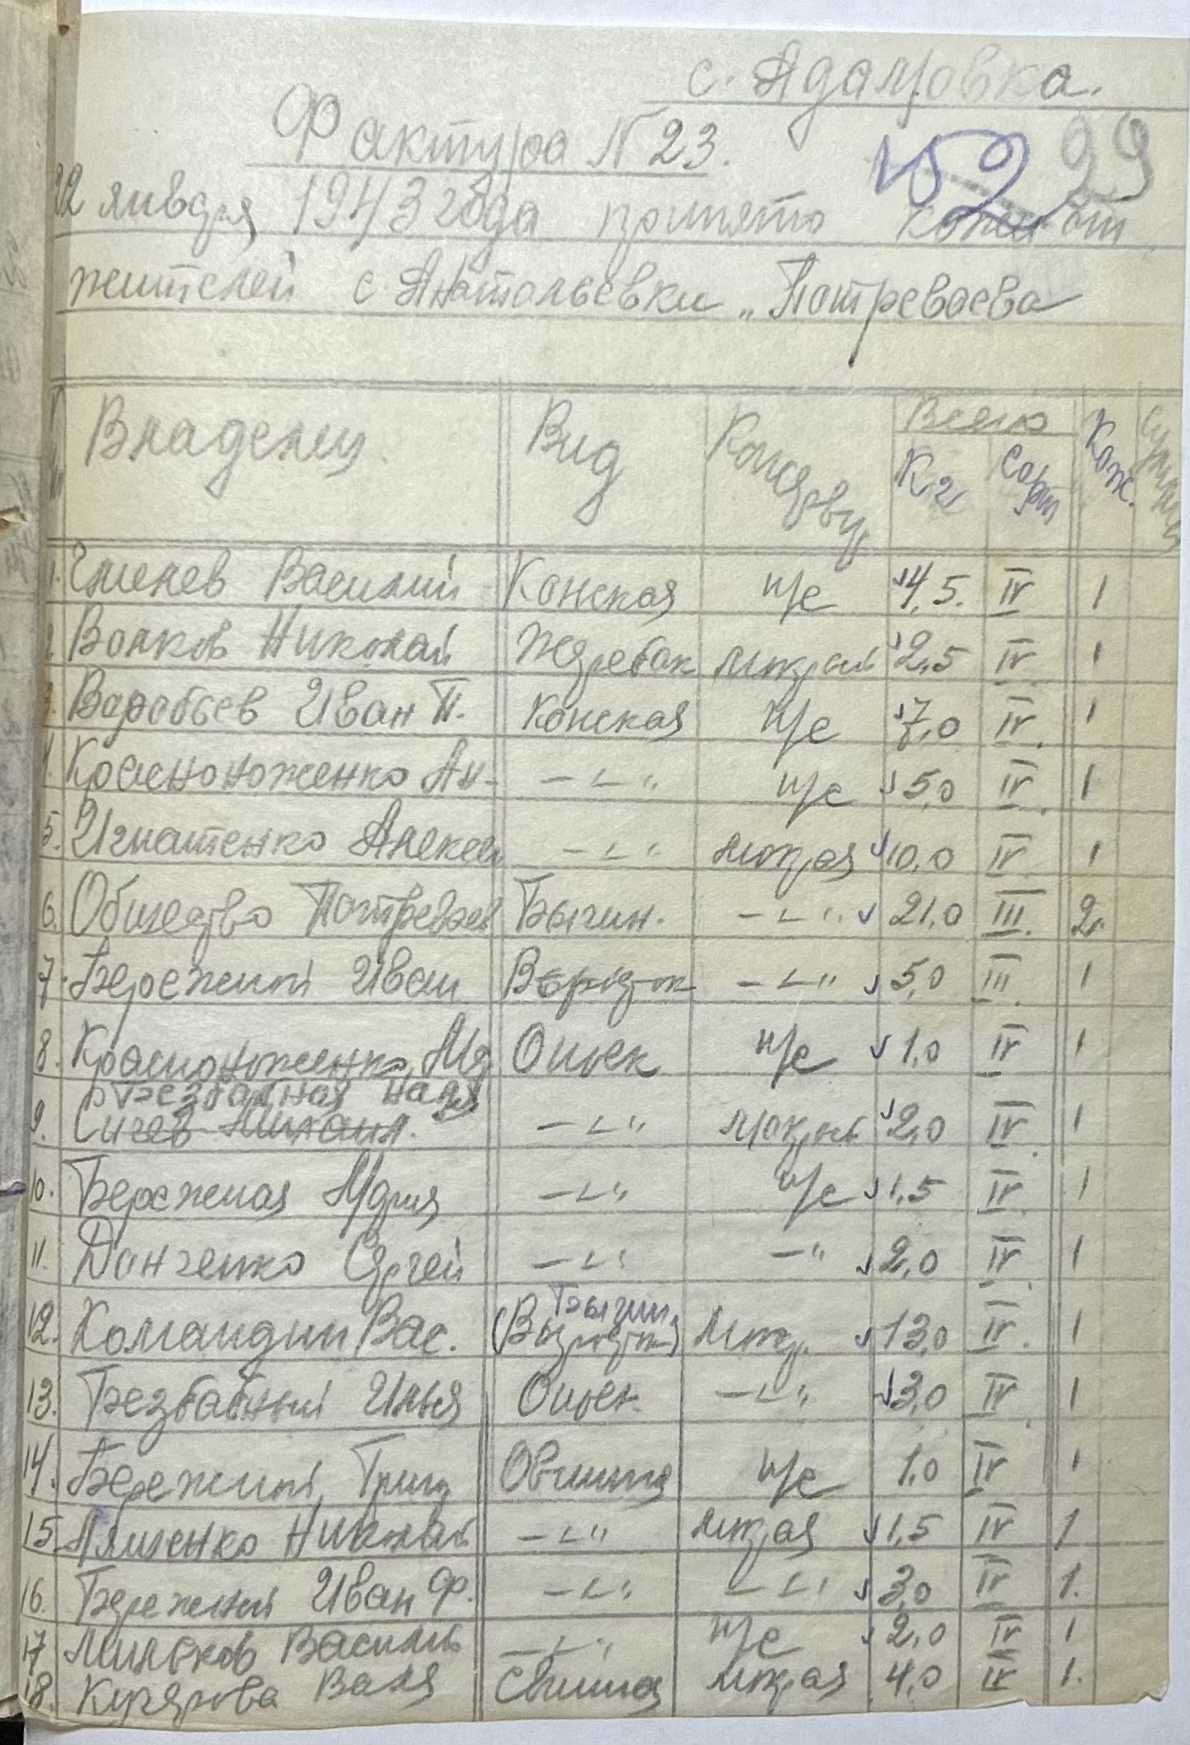 с. Адамовка.
Фактура N 23.
№ 2 29
22 января 1943 года принято кожи от
жителей с. Анатольевки „Потреваева
Владелец. Вид Всего Кож.
Кг Сорт
1. Василий Конская н/с 4,5. IV 1
2. Волков Николай Жеребок мокрый 2,5 IV 1
3. Воробьев Иван П. Конская н/с 7,0 IV 1
4. Красноноженко Ан. –〃– н/с 5,0 IV 1
5. Игнатенко Алексей –〃– мокрая 10,0 IV 1
6. Общество Потреваев Бычин. –〃– 21,0 III 2
7. Бережной Иван –〃– 5,0 III 1
8. Красноноженко Опоек н/с 1,0 IV 1
Безбабная Надя
9. Сичев Михаил. –〃– мокрый 2,0 IV 1
10. Бережная Мария –〃– н/с 1,5 IV 1
11. Данченко Сергей –〃– –〃 2,0 IV 1
Бычин.
12. Командин Вас. Мокр. 13,0 IV 1
13. Безбабный Илья Опоек –〃– 3,0 IV 1
14. Бережной Григ Овчина н/с 1,0 IV 1
15. Ляшенко Николай –〃– мокрая 1,5 IV 1
16. Бережной Иван Ф. –〃– –〃– 3,0 IV 1.
17 Мильков Василь –〃– н/с 2,0 IV 1
18. Кучерова Валя Свиная мокрая 4,0 IV 1.